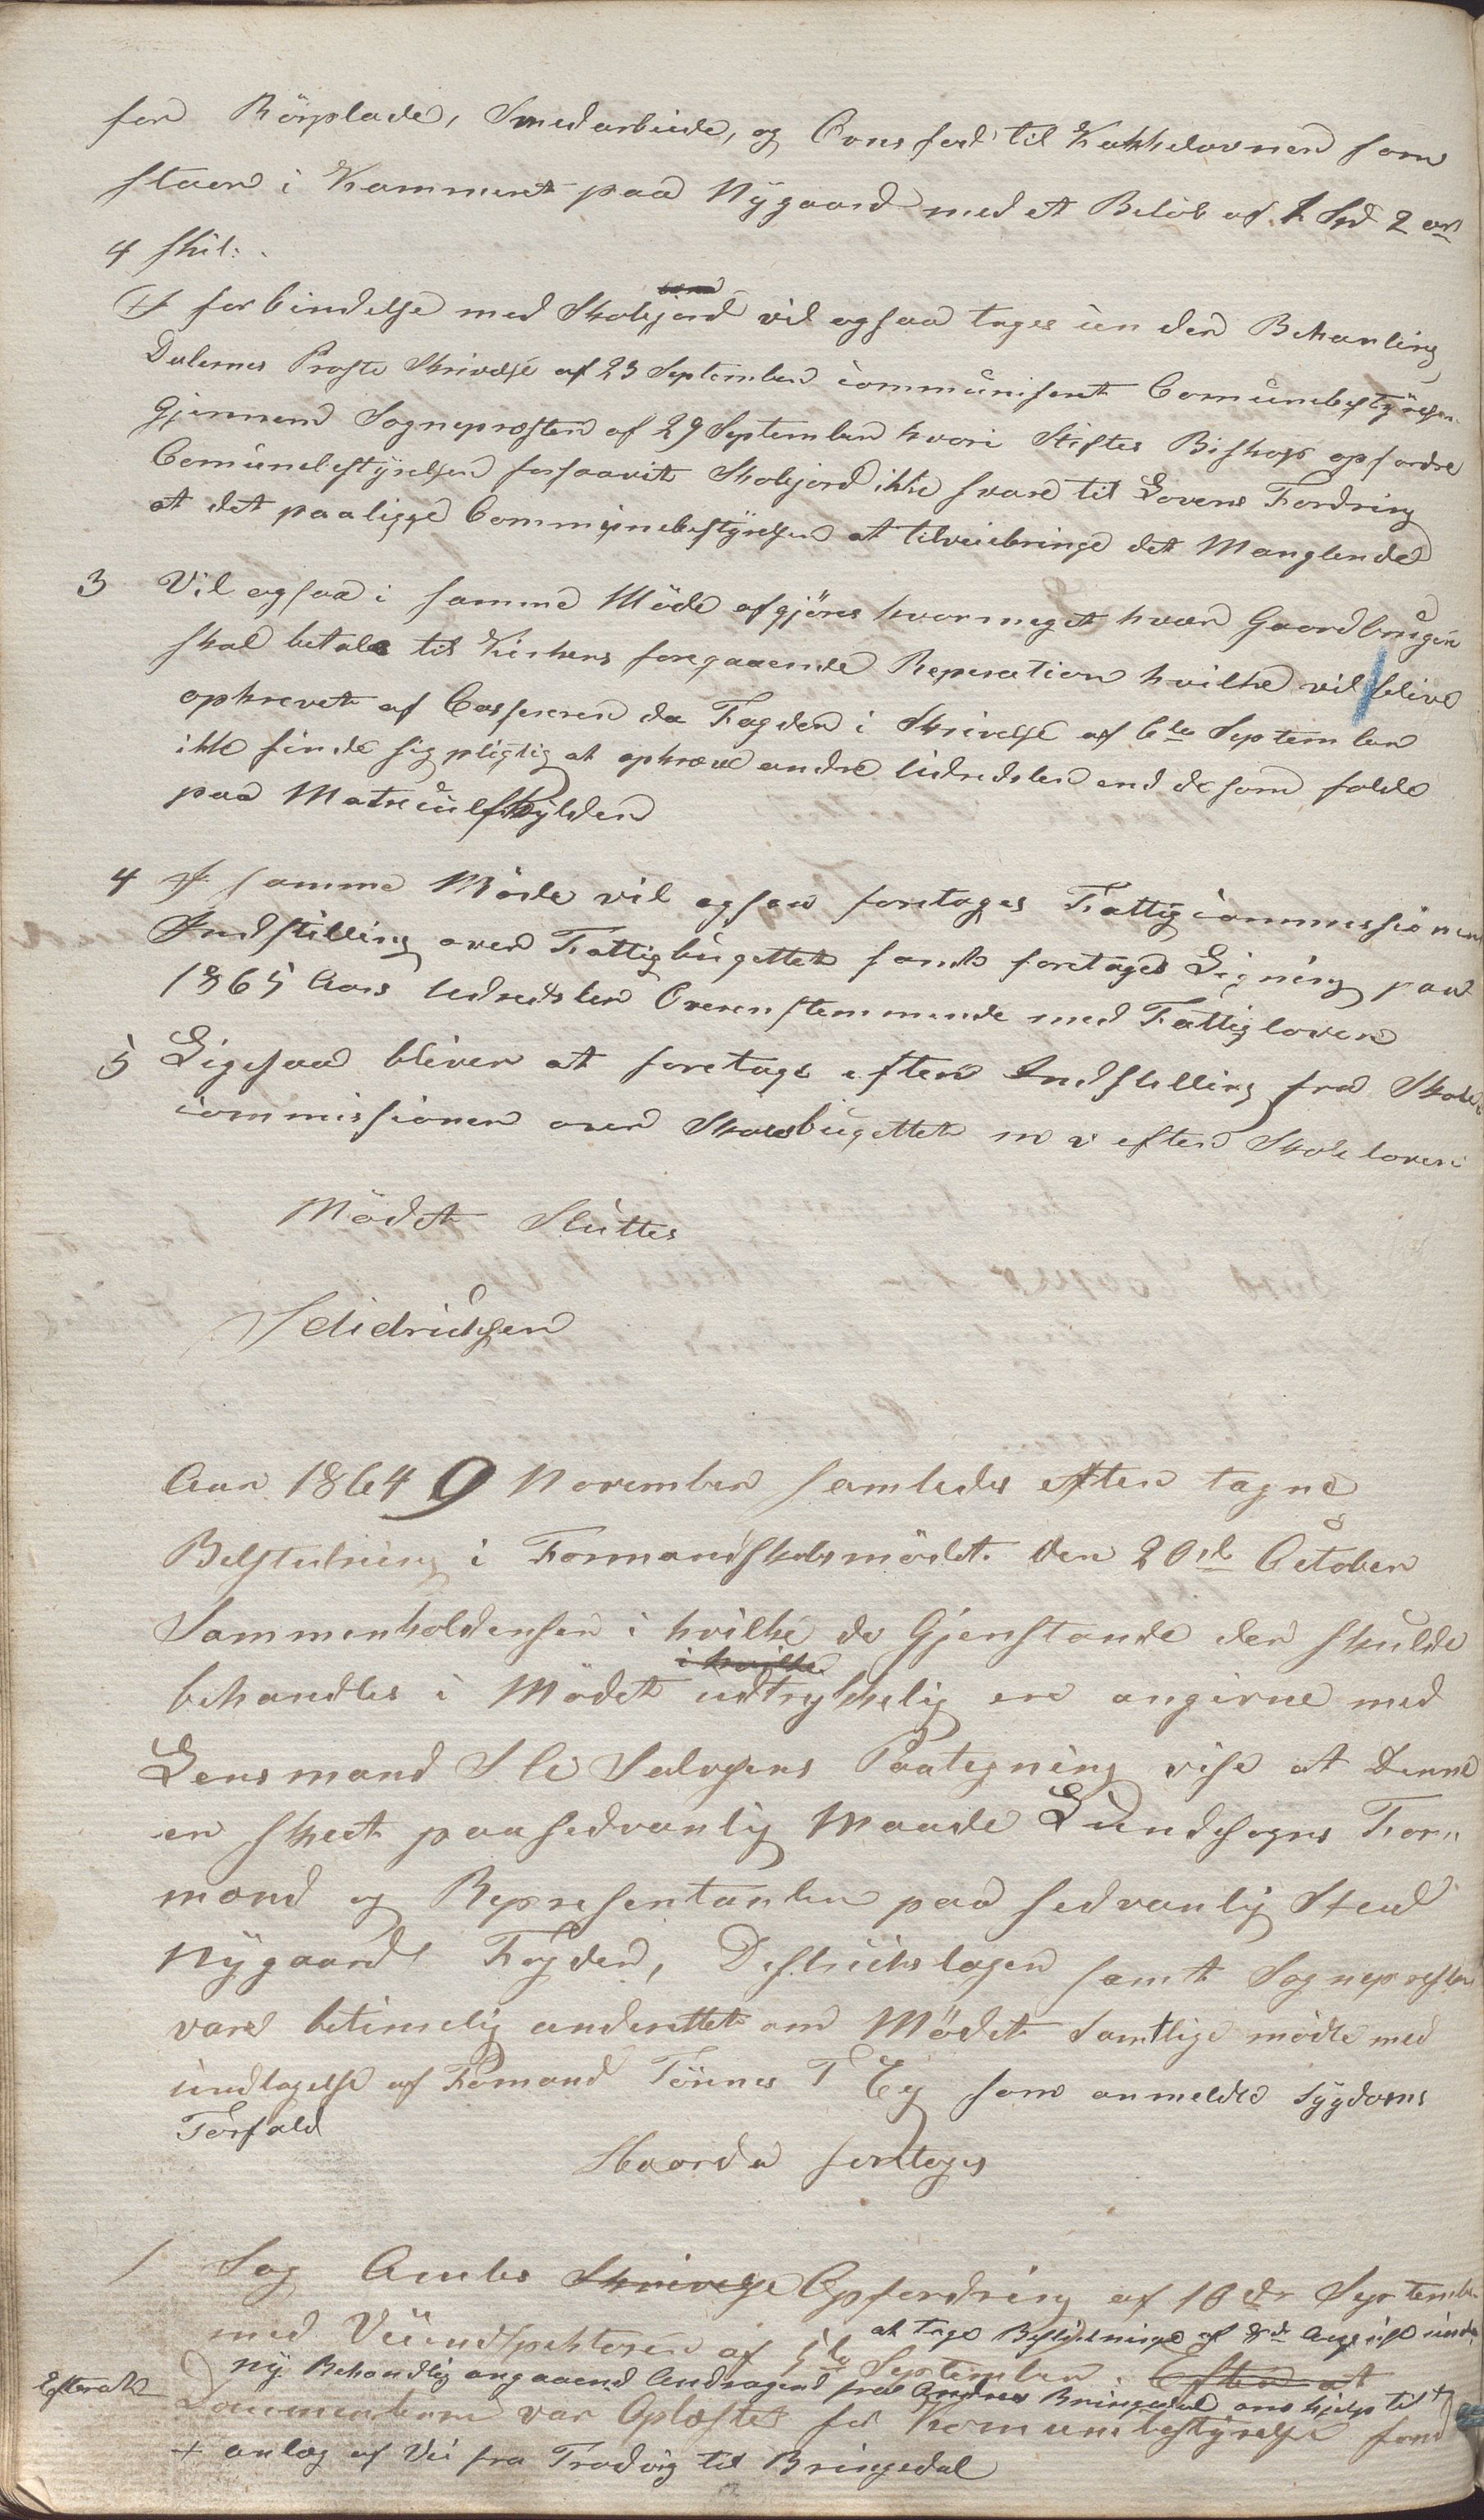 for Rörplade, Smedarbeide, og Consferd til Kakkelovnen som
staar i Kammeret paa Nÿgaard med et Belöb af 1 Spd 2 ort
4 skil:
I forbindelse med Skolejord vil ogsaa tages unden Behanling
Dalernes Proste Skrivelse af 23 September communiseret Comunebestÿrelsen
Gjennem Sogneprästen af 29 September hvori Stiftes Biskop opfordre
Comunebestÿrelsen forsaavit Skolejord ikke svare til Lovens Fordring
at det paaligge Communebestÿrelsen at tilveiebringe det Manglende
3 Vil ogsaa i samme Möde afgjöres hvormeget hver Gaardbruger
skal betale til Kirkens foregaaende Reperation hvilke vil blive
opkrevet af Casseren da Fogden i Skrivelse af 6te September
ikke finde sig pligtig at opkræve andre Udredsler end de som falde
paa Matriculskÿlden
4 I samme Möde vil ogsaa foretages Fattigcommissionens
Indstilling over Fattigbugettet samt foretages Ligning paa
1865 Aars Udredsler Overenstemmende med Fattigloven
5 Ligesaa bliver at foretage efter Indstilling fra Skole
commissionen over Skolebugettet m v efter Skoleloven
Mödet Sluttes
Sdidriksen
Aar 1864 9 November samledes efter tagne
Beslutning i Formandskabsmödet den 20de October
Sammenholdensen i hvilke de Gjenstande der skulde
i hvilke
behandles i Mödet udtrykkelig ere angivne med
Lensmand S Salvesens Paategning vise at denne
er skeet paa sedvanlig Maade Lundesogns For„
mænd og Representanter paa sedvanlig Sted
Nÿgaard Fogden, Destrikslagen samt Sognepresten
vare betimelig underettet om Mödet Samtlige mödte med
undtagelse af Formand Tönnes T Eg som anmeldte Sÿgdoms
Forfald
Hvorda foretoges
1 Sag Amtes Skrivelse Opfordring af 10de September
at tage Beslutninge af 8de August under
med Veiindspektören af 5te September. Efter at
nÿ Behandlig angaaend Andragend fra Andreas Bringedal om hjelp til +
Efterat Documenterne var Oplæste for Komunebestÿrelse fand
+ anlæg af Vei fra Trodvig til Bringedal